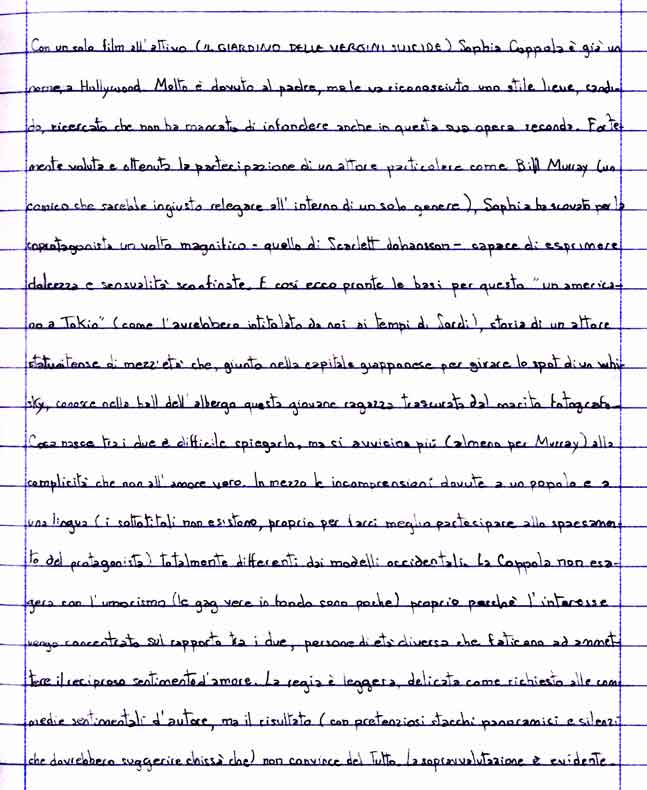 Con un solo film all'attivo (IL GIARDINO DELLE VERGINI SUICIDE) Sophia Coppola è già un
nome a Hollywood. Molto è dovuto al padre, ma le va riconosciuto uno stile lieve, candi-
do, ricercato che non ha mancato di infondere anche in questa sua opera seconda. Forte-
mente voluta e ottenuta la partecipazione di un attore particolare come Bill Murray (un
comico che sarebbe ingiusto relegare all'interno di un solo genere), Sophia ha scovato per la
coprotagonista un volto magnifico - quello di Scarlett Johansson - capace di esprimere
dolcezza e sensualità sconfinate. E così ecco pronte le basi per questo "un america-
no a Tokio" (come l'avrebbero intitolato da noi ai tempi di Sordi), storia di un attore
statunitense di mezz'età che, giunto nella capitale giapponese per girare lo spot di un whi-
sky, conosce nella hall dell'albergo questa giovane ragazza trascurata dal marito fotografo.
Cosa nasce tra i due è difficile spiegarlo, ma si avvicina più (almeno per Murray) alla
complicità che non all'amore vero. In mezzo le incomprensioni dovute a un popolo e a
una lingua (i sottotitoli non esistono, proprio per farci meglio partecipare allo spaesamen-
to del protagonista) totalmente differenti dai modelli occidentali. La Coppola non esa-
gera con l'umorismo (le gag vere in fondo sono poche) proprio perchè l'interesse
venga concentrato sul rapporto tra i due, persone di età diversa che faticano ad ammet-
tere il reciproco sentimento d'amore. La regia è leggera, delicata come richiesto alle com-
medie sentimentali d'autore, ma il risultato (con pretenziosi stacchi panoramici e silenzi
che dovrebbero suggerire chissà che) non convince del tutto. La sopravvalutazione è evidente.